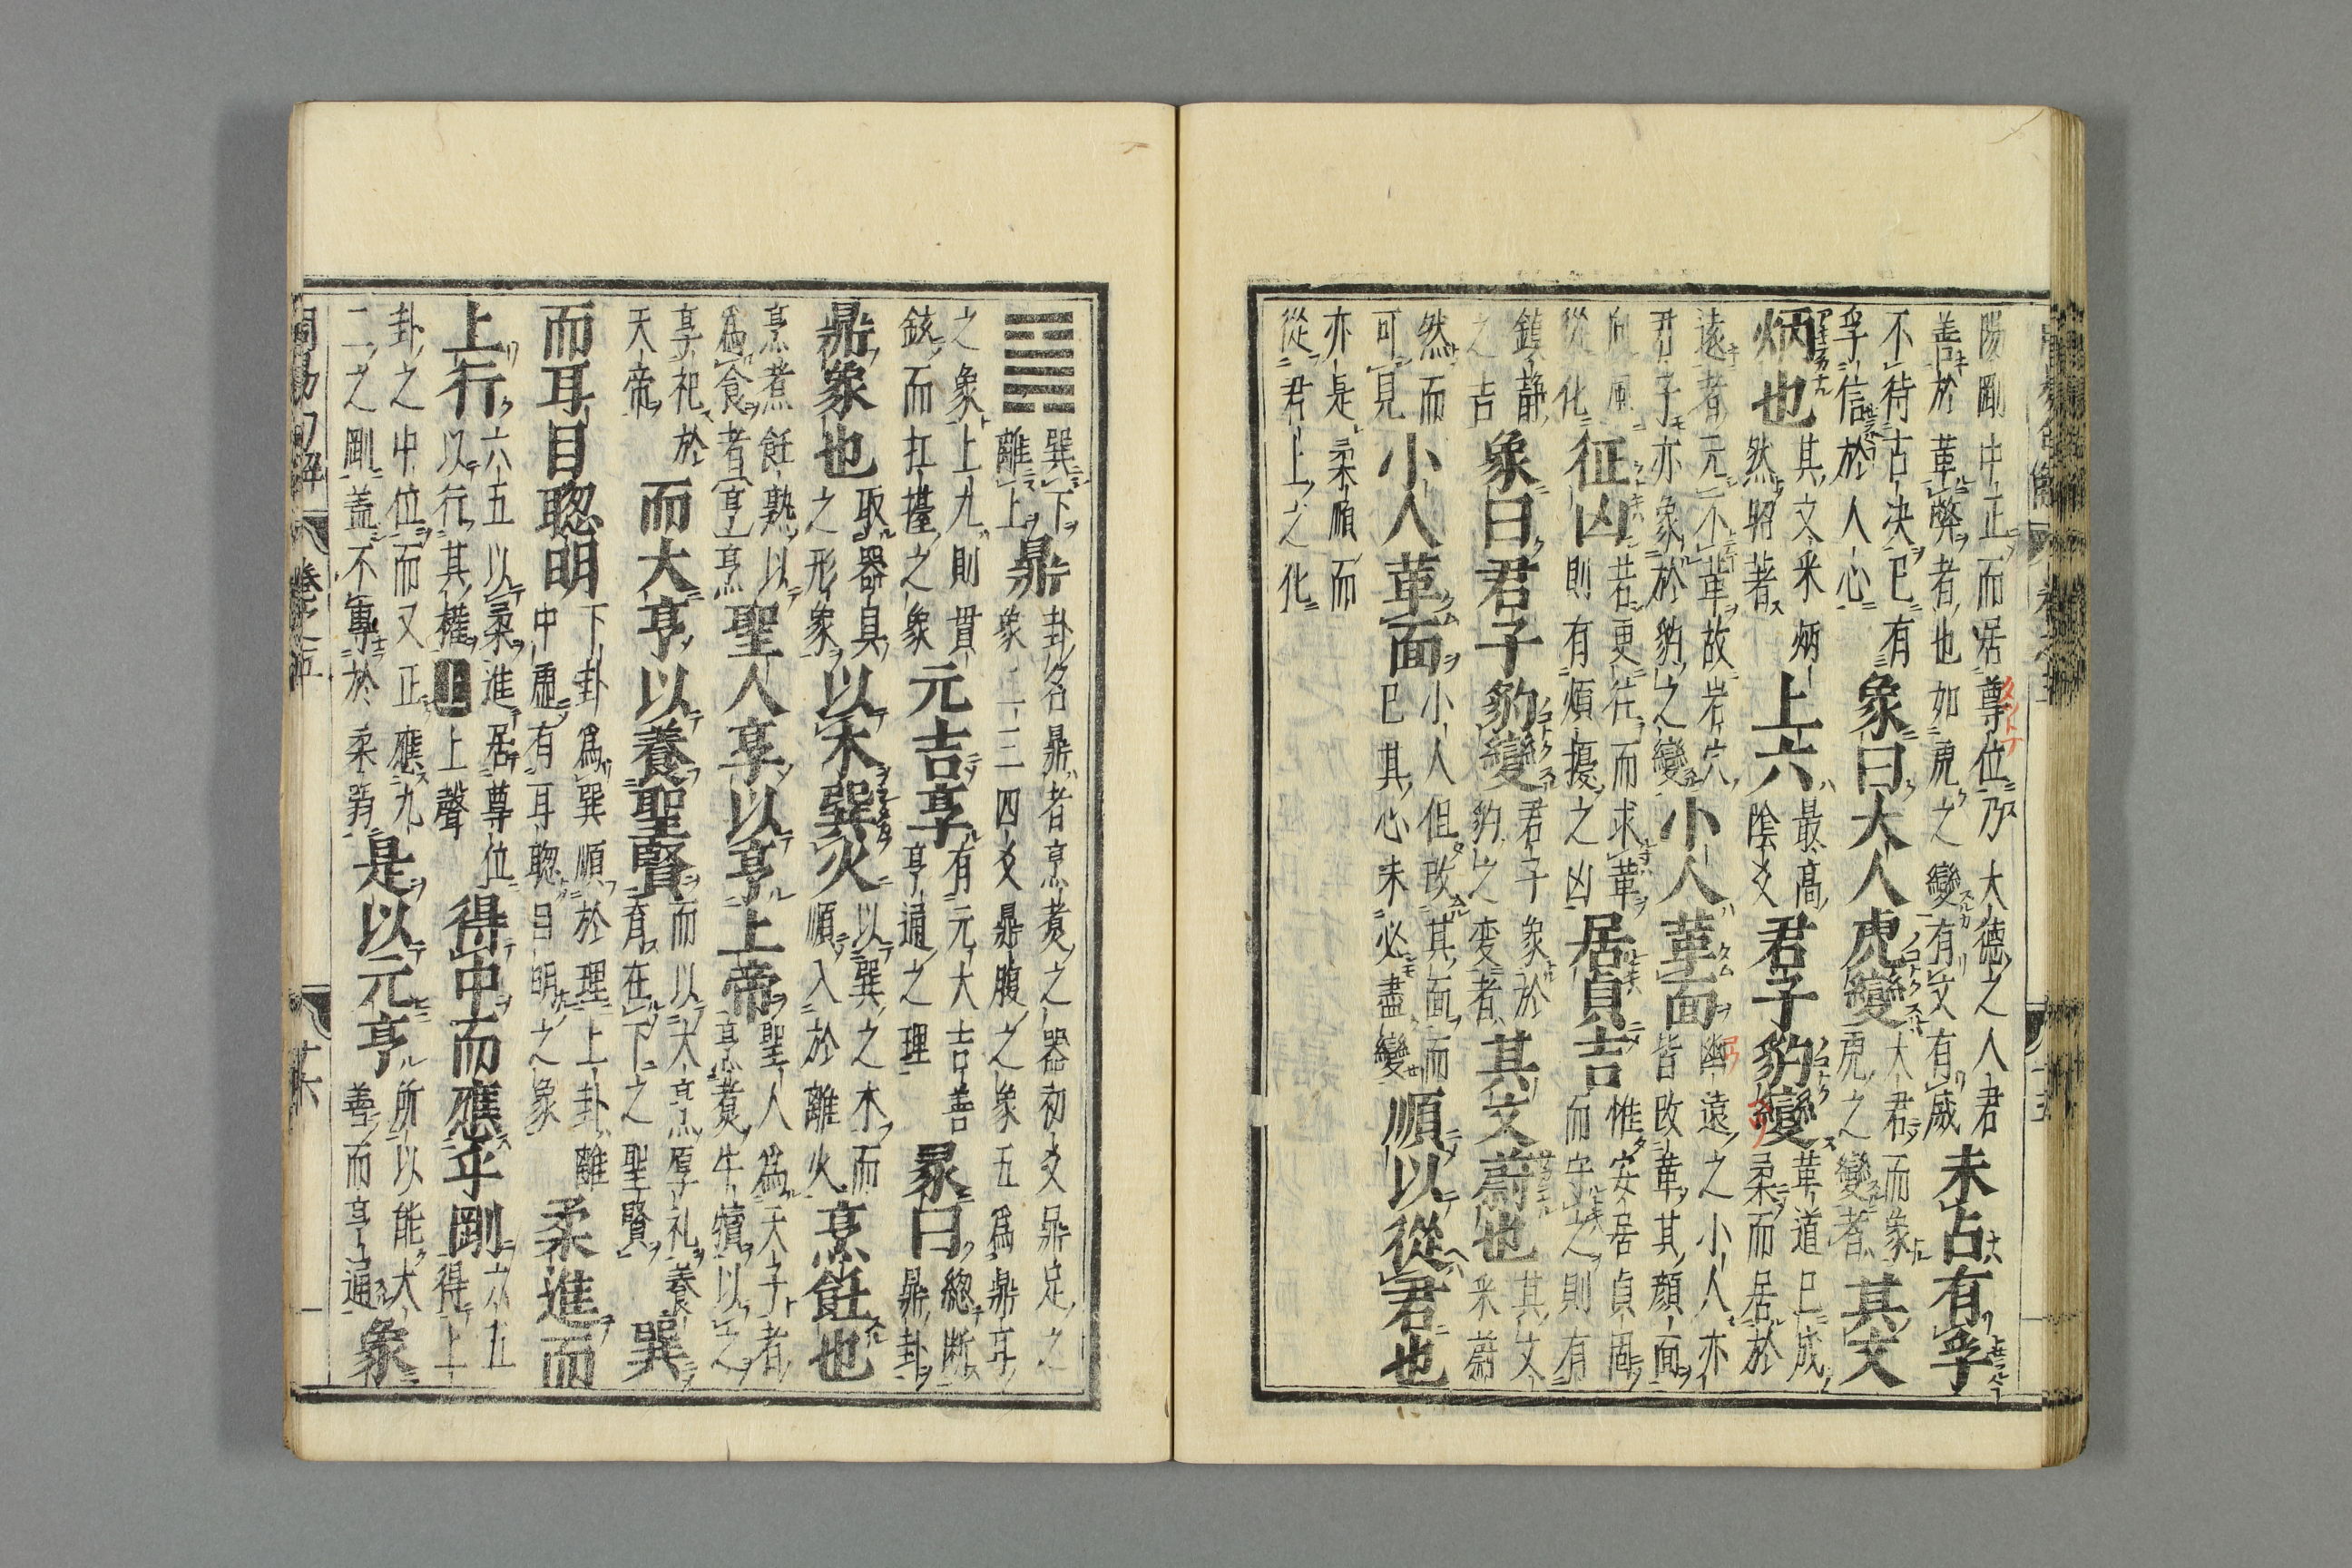 陽剛中正而居尊位乃大德之人君
善於革弊者也如虎之變有文有威
未占有孚
不待古決已有
孚信於人心
象曰大人虎變
大君而象
虎之變者
其文
炳也
其文釆炳
然昭著
上六
最高
陰爻
君子豹變
革道已成
柔而居於
遠者元不革故岩穴
君子亦象於豹之變
小人革面
幽遠之小人亦
皆改革其顔面
向風
從化
征凶
若更往而求革
則有煩擾之凶
居貞吉
惟安居貞固
而守之則有
鎮静
之吉
象曰君子豹變
君子象於
豹之变者
其文蔚也
其文
釆蔚
然而
可見
小人革面
小人但改其面而
已其心未必盡變
順以從君也
亦是柔順而
從君上之化
巽下
離上
鼎
卦名鼎者烹煮之器初爻鼎足之
象二三四爻鼎腹之象五為鼎耳
之象上九則貫
鉉而扛擡之象
元吉亨
有元大吉善
亨通之理
彖曰
總断
鼎卦
鼎象也
取器具
之形象
以木巽火
以巽之木而
順入於離火
烹飪也
烹煮飪熟以
為食者亨烹
聖人亨以亨上帝
聖人為天子者
烹煮牛犢以之
享祀於
天帝
而大亨以養聖賢
而以大烹厚礼養
育在下之聖賢
巽
而耳目聦明
下卦為巽順於理上卦離
中虛有耳聦目明之象
柔進而
上行
六五以柔進居尊位
以行其權上上聲
得中而應乎剛
六五
得上
卦之中位而又正應九
二之剛蓋不專於柔弱
是以元亨
所以能大
善而亨通
象